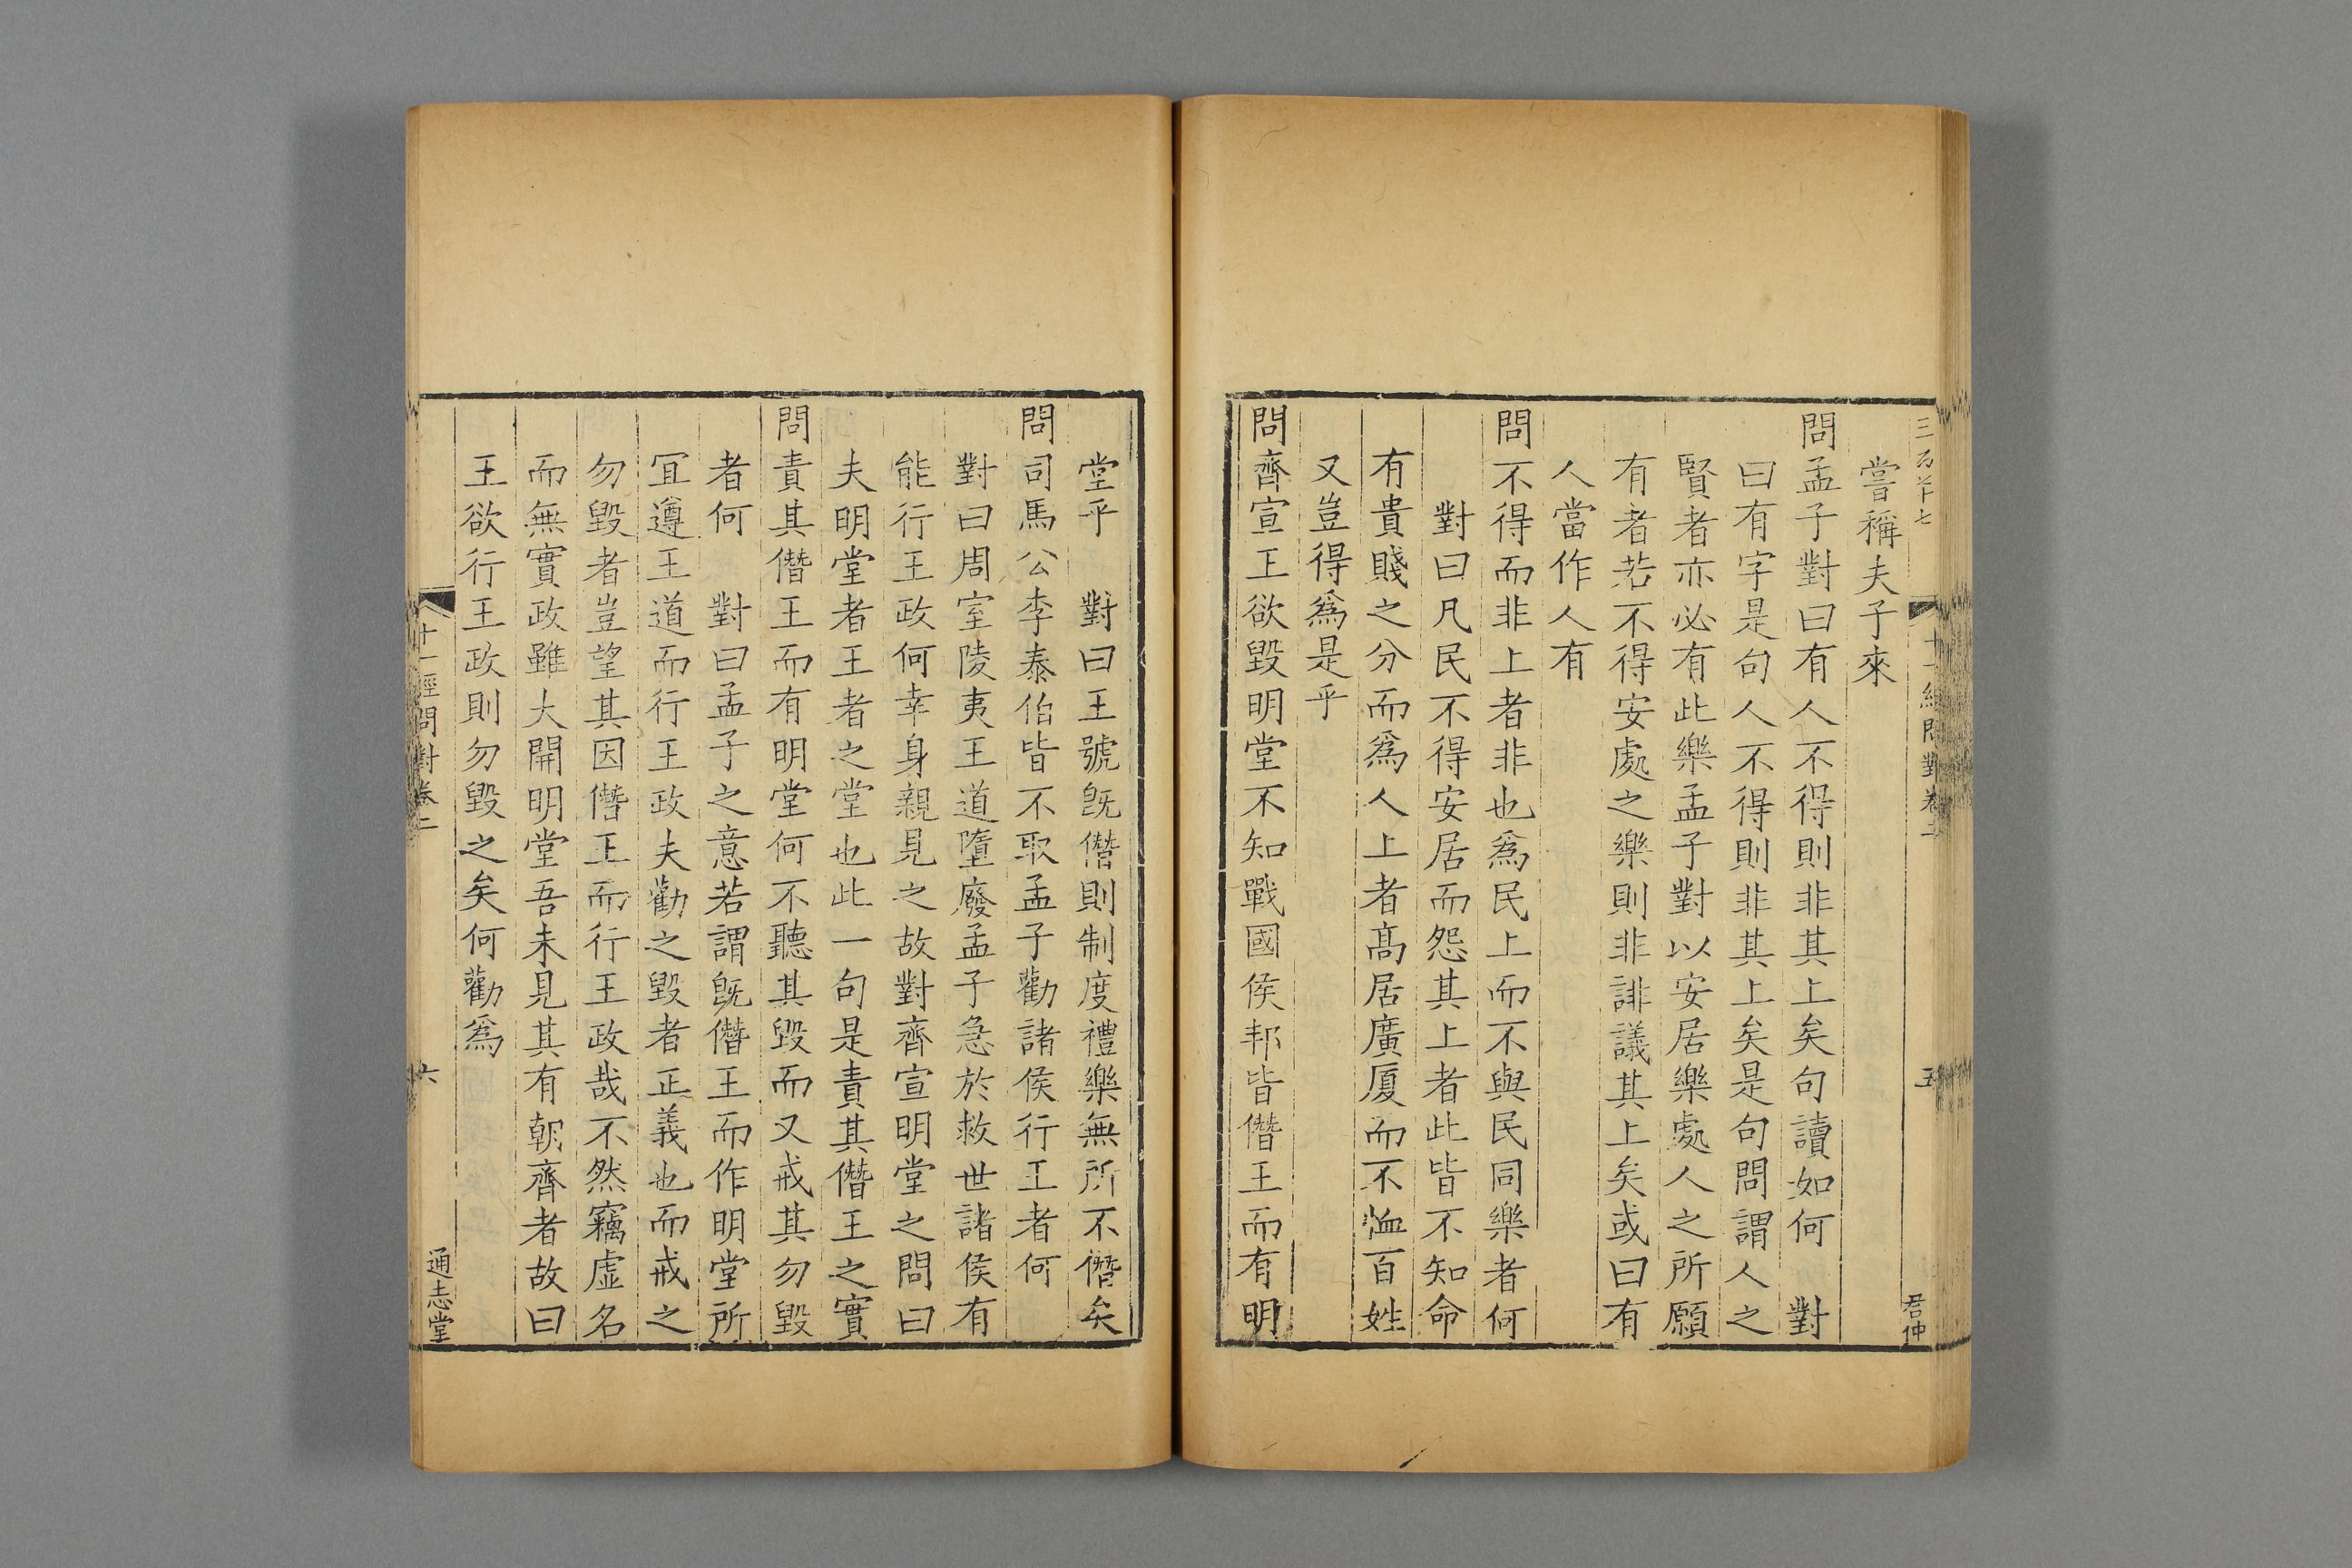 十一經問對卷二
五
君仲
嘗稱夫子來
問孟子對曰有人不得則非其上矣句讀如何　對
曰有字是句人不得則非其上矣是句問謂人之
賢者亦必有此樂孟子對以安居樂處人之所願
有者若不得安處之樂則非誹議其上矣或曰有
人當作人有
問不得而非上者非也爲民上而不與民同樂者何
對曰凡民不得安居而怨其上者此皆不知命
有貴賤之分而爲人上者髙居廣厦而不恤百姓
又豈得爲是乎
問齊宣王欲毀明堂不知戰國侯邦皆僭王而有明
堂乎　對曰王號旣僭則制度禮樂無所不僭矣
問司馬公李泰伯皆不取孟子勸諸侯行王者何
對曰周室陵夷王道墮廢孟子急於救世諸侯有
能行王政何幸身親見之故對齊宣明堂之問曰
夫明堂者王者之堂也此一句是責其僭王之實
問責其僭王而有明堂何不聽其毀而又戒其勿毀
者何　對曰孟子之意若謂旣僭王而作明堂所
宜遵王道而行王政夫勸之毀者正義也而戒之
勿毀者豈望其因僭王而行王政哉不然竊虛名
而無實政雖大開明堂吾未見其有朝齊者故曰
王欲行王政則勿毀之矣何勸爲
十一經問對卷二
六
通志堂